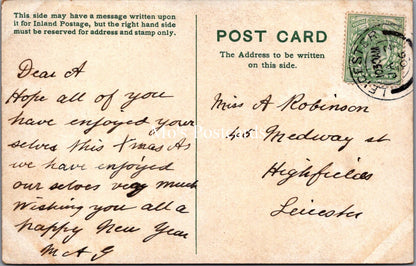 This side may have a message written upon
it for Inland Postage, but the right hand side
must be reserved for address and stamp only.
Dear A
Hope all of you
have enjoyed your
selves this Xmas As
we have enjoyed
our selves very much
Wishing you all a
happy New Year
M A G
POST CARD
The Address to be written
on this side.
Miss A Robinson
46 Medway st
Highfields
Leicester
Mo's Postcards
LEICESTER